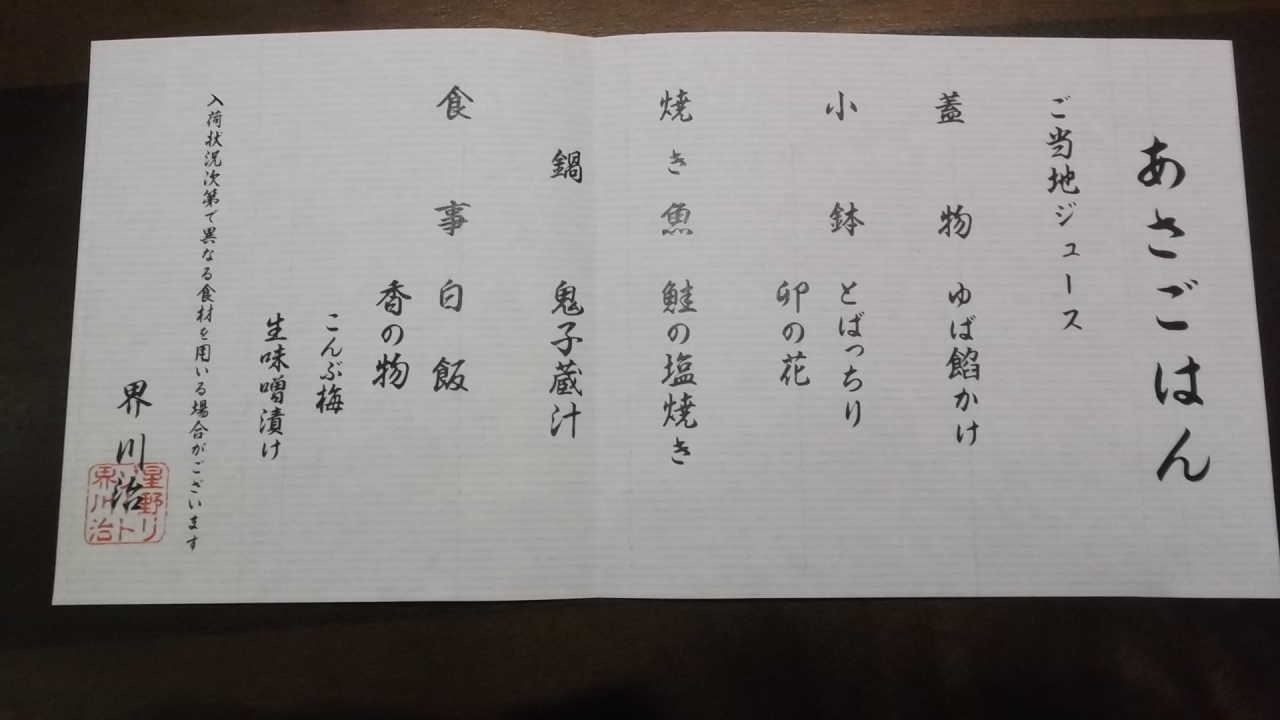 あさごはん
ご当地ジュース
蓋物 ゆば餡かけ
小鉢 とばっちり
卯の花
焼き魚 鮭の塩焼き
鍋 鬼子蔵汁
食事 白飯
香の物
こんぶ梅
生味噌漬け
入荷状況次第で異なる食材を用いる場合がございます
界川治
星野リ
ゾート
界川治